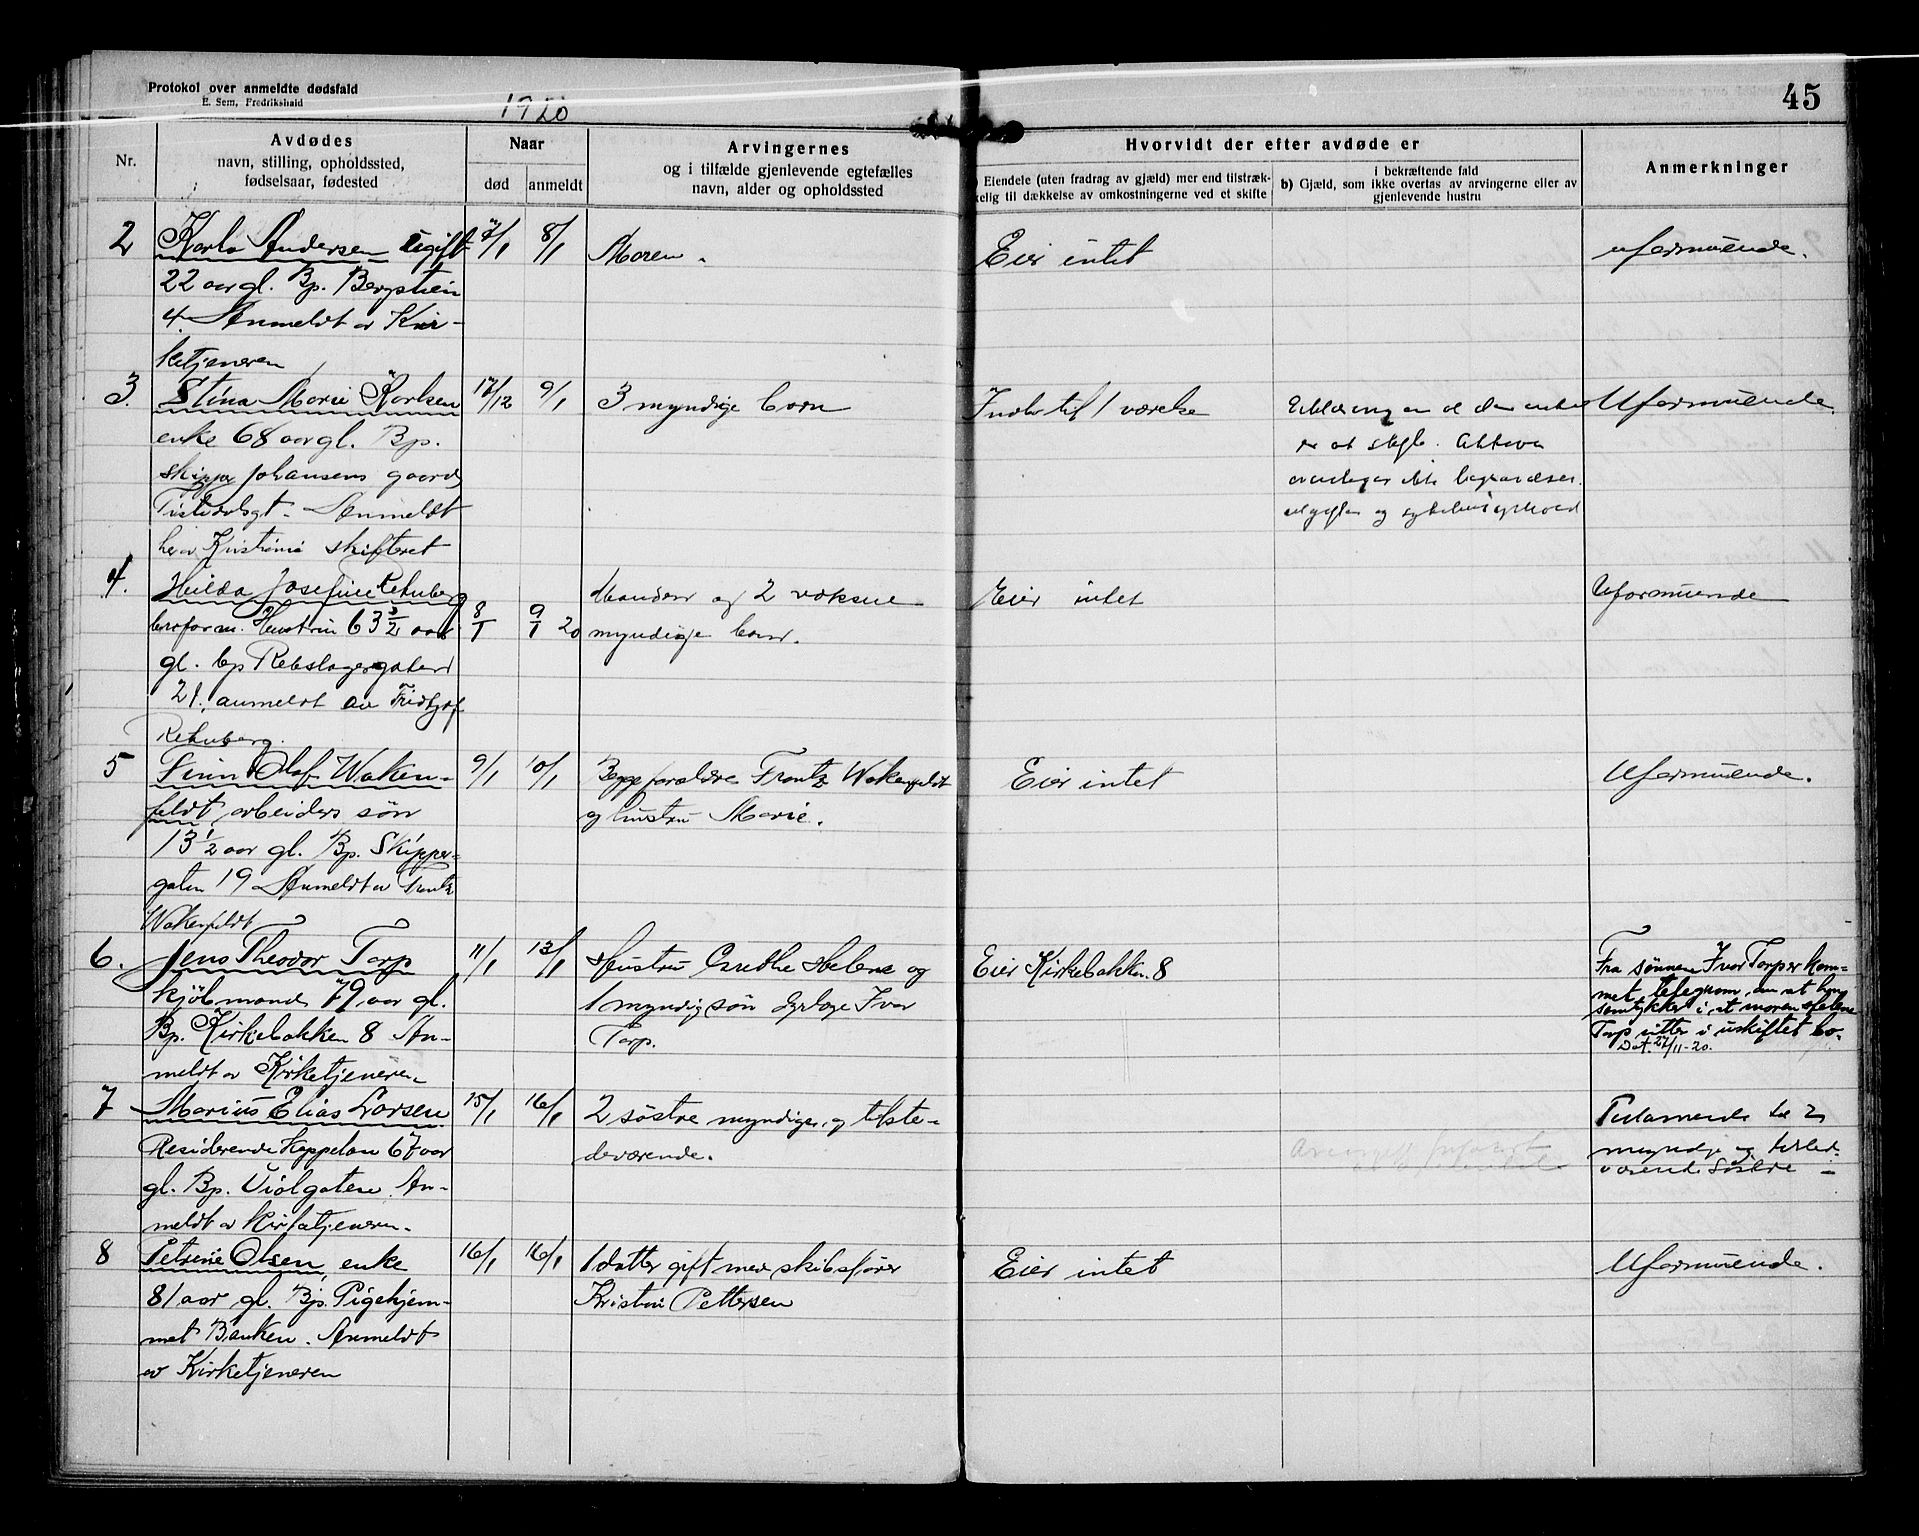 Protokol over anmeldte dødsfald
E. Sem, Fredrikshald
1920
45
Nr.
Avdødes
navn, stilling, opholdssted,
fødselsaar, fødested
Naar
død
anmeldt
Arvingernes
og i tilfælde gjenlevende egtefælles
navn, alder og opholdssted
Hvorvidt der efter avdøde er
Eiendele (uten fradrag av gjæld) mer end tilstræk-
kelig til dækkelse av omkostningerne ved et skifte
i bekræftende fald
b) Gjæld, som ikke overtas av arvingerne eller av
gjenlevende hustru
Anmerkninger
2
Karla Andersen ugift
22 aar gl. Bp. Bergstien
4. Anmeldt av Kir-
ketjeneren
7/1
8/1
Moren.
Eier intet
uformuende.
3.
Stina Marie Karlsen
enke 68 aar gl. Bp.
skipper Johansens gaard
Tistedalsgt. Anmeldt
her av Kristiania skifteret
17/12
9/1
3 myndige barn
Indbo til 1 værelse
Uformuende.
4.
Hilda Josefine Rehnberg
hustru 63 1/2 aar
gl. bp Rebslagergaten
21. anmeldt av Fridtjof
Rehnberg.
8/1
9/1 20
Manden og 2 voksne
myndige barn.
Eier intet
Uformuende
5
Finn Olaf Waken-
feldt, arbeiders søn
13 1/2 aar gl. Bp. Skipper-
gaten 19 Anmeldt av Frantz
Wakenfeldt
9/1
10/1
Begge forældre Frantz Wakenfeldt
og hustru Marie.
Eier intet
Uformuende.
6.
Jens Theodor Torp
kjøbmand 79 aar gl.
Bp. Kirkebakken 8 An-
meldt av Kirketjeneren
11/1
13/1
Hustru Helene og
1 myndig søn dyrlæge Ivar
Torp.
Eier Kirkebakken 8
Fra sønnen Ivar Torp er kom-
met telegram om at han
samtykker i, at moren Helene
Torp sitter i uskiftet bo.
Dat. 27/11-20.
7
Marius Elias Larsen
Residerende Kappelan 67 aar
gl. Bp. Violgaten An-
meldt av Kirketjeneren.
15/1
16/1
2 søstre myndige og tilste-
deværende.
Testamente til 2
myndige og tilsted-
værende søstre
8
Petrine Olsen, enke
81 aar gl. Bp. Pigehjem-
met Banken. Anmeldt
av Kirketjeneren
16/1
16/1
1 datter gift med skibsfører
Kristian Pettersen
Eier intet
Uformuende.